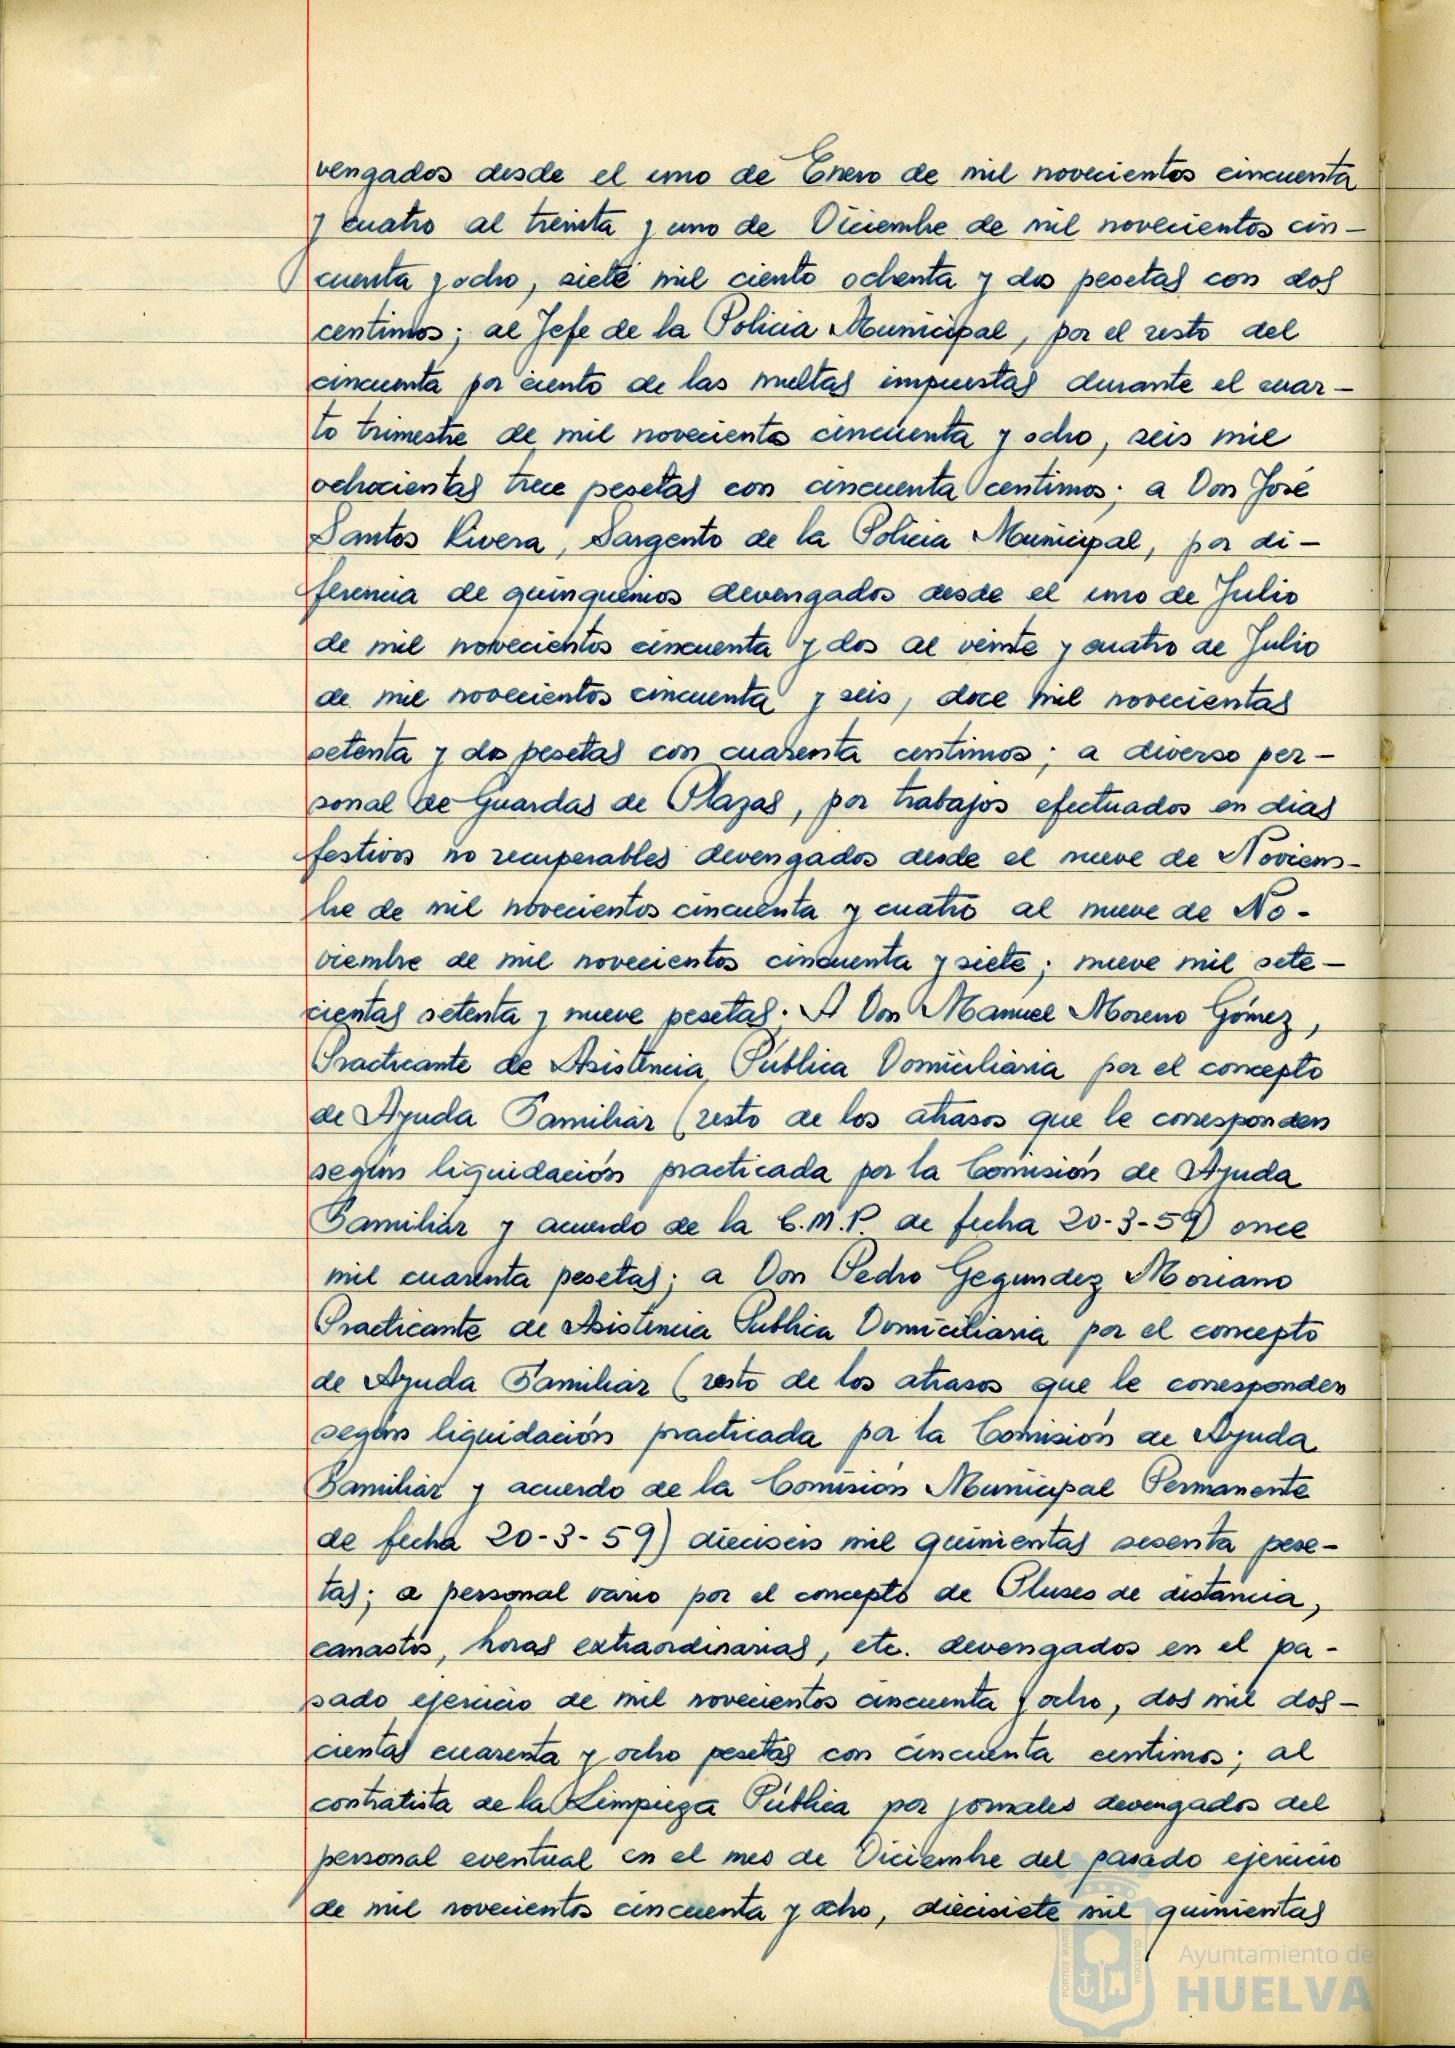 vengados desde el uno de Enero de mil novecientos cincuenta
y cuatro al treinta y uno de Diciembre de mil novecientos cin-
cuenta y ocho, siete mil ciento ochenta y dos pesetas con dos
centimos; al Jefe de la Policia Municipal, por el resto del
cincuenta por ciento de las multas impuestas durante el cuar-
to trimestre de mil novecientos cincuenta y ocho, seis mil
ochocientas trece pesetas con cincuenta centimos; a Don José
Santos Rivera, Sargento de la Policia Municipal, por di-
ferencia de quinquenios devengados desde el uno de Julio
de mil novecientos cincuenta y dos al veinte y cuatro de Julio
de mil novecientos cincuenta y seis, doce mil novecientas
setenta y dos pesetas con cuarenta centimos; a diverso per-
sonal de Guardas de Plazas, por trabajos efectuados en dias
festivos no recuperables devengados desde el nueve de Noviem-
bre de mil novecientos cincuenta y cuatro al nueve de No-
viembre de mil novecientos cincuenta y siete; nueve mil sete-
cientas setenta y nueve pesetas; A Don Manuel Moreno Gómez,
Practicante de Asistencia Pública Domiciliaria por el concepto
de Ayuda Familiar (resto de los atrasos que le corresponden
según liquidación practicada por la Comisión de Ayuda
Familiar y acuerdo de la C.M.P. de fecha 20-3-59) once
mil cuarenta pesetas; a Don Pedro Gegundez Moriano
Practicante de Asistencia Publica Domiciliaria por el concepto
de Ayuda Familiar (resto de los atrasos que le corresponden
según liquidación practicada por la Comisión de Ayuda
Familiar y acuerdo de la Comisión Municipal Permanente
de fecha 20-3-59) dieciseis mil quinientas sesenta pese-
tas; a personal vario por el concepto de Pluses de distancia,
canastos, horas extraordinarias, etc. devengados en el pa-
sado ejercicio de mil novecientos cincuenta y ocho, dos mil dos-
cientas cuarenta y ocho pesetas con cincuenta centimos; al
contratista de la Limpieza Pública por jornales devengados del
personal eventual en el mes de Diciembre del pasado ejercicio
de mil novecientos cincuenta y ocho, diecisiete mil quinientas
Ayuntamiento de
HUELVA